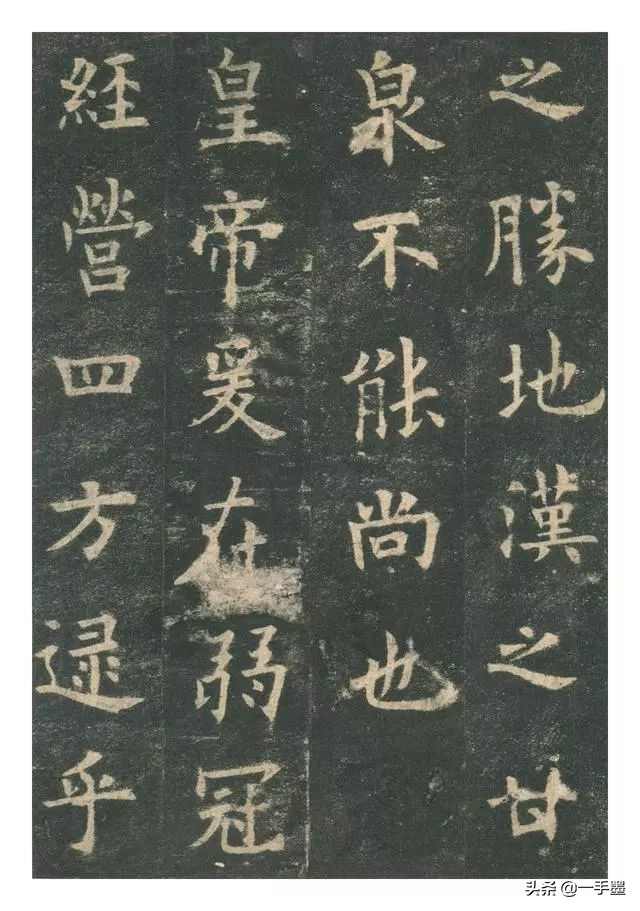 之勝地漢之甘
泉不能尚也
皇帝爰在弱冠
經營四方逯乎
头条@一手墨